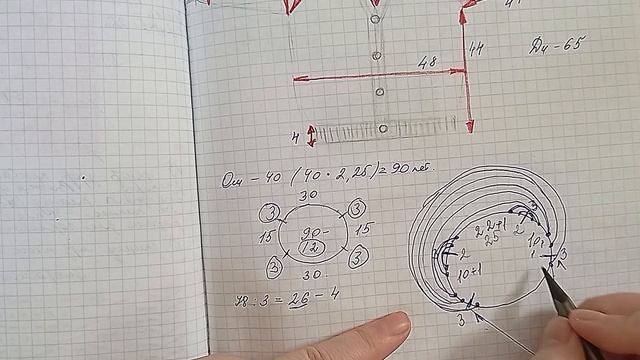 48
44
Ди - 65
4
Ош - 40 (40 • 2,25) = 90 пет.
30
3
3
15
90-
12
15
3
3
30
78 : 3 = 26 - 4
3
2 2+1 2
25
10,
1
3
2
10+1
3